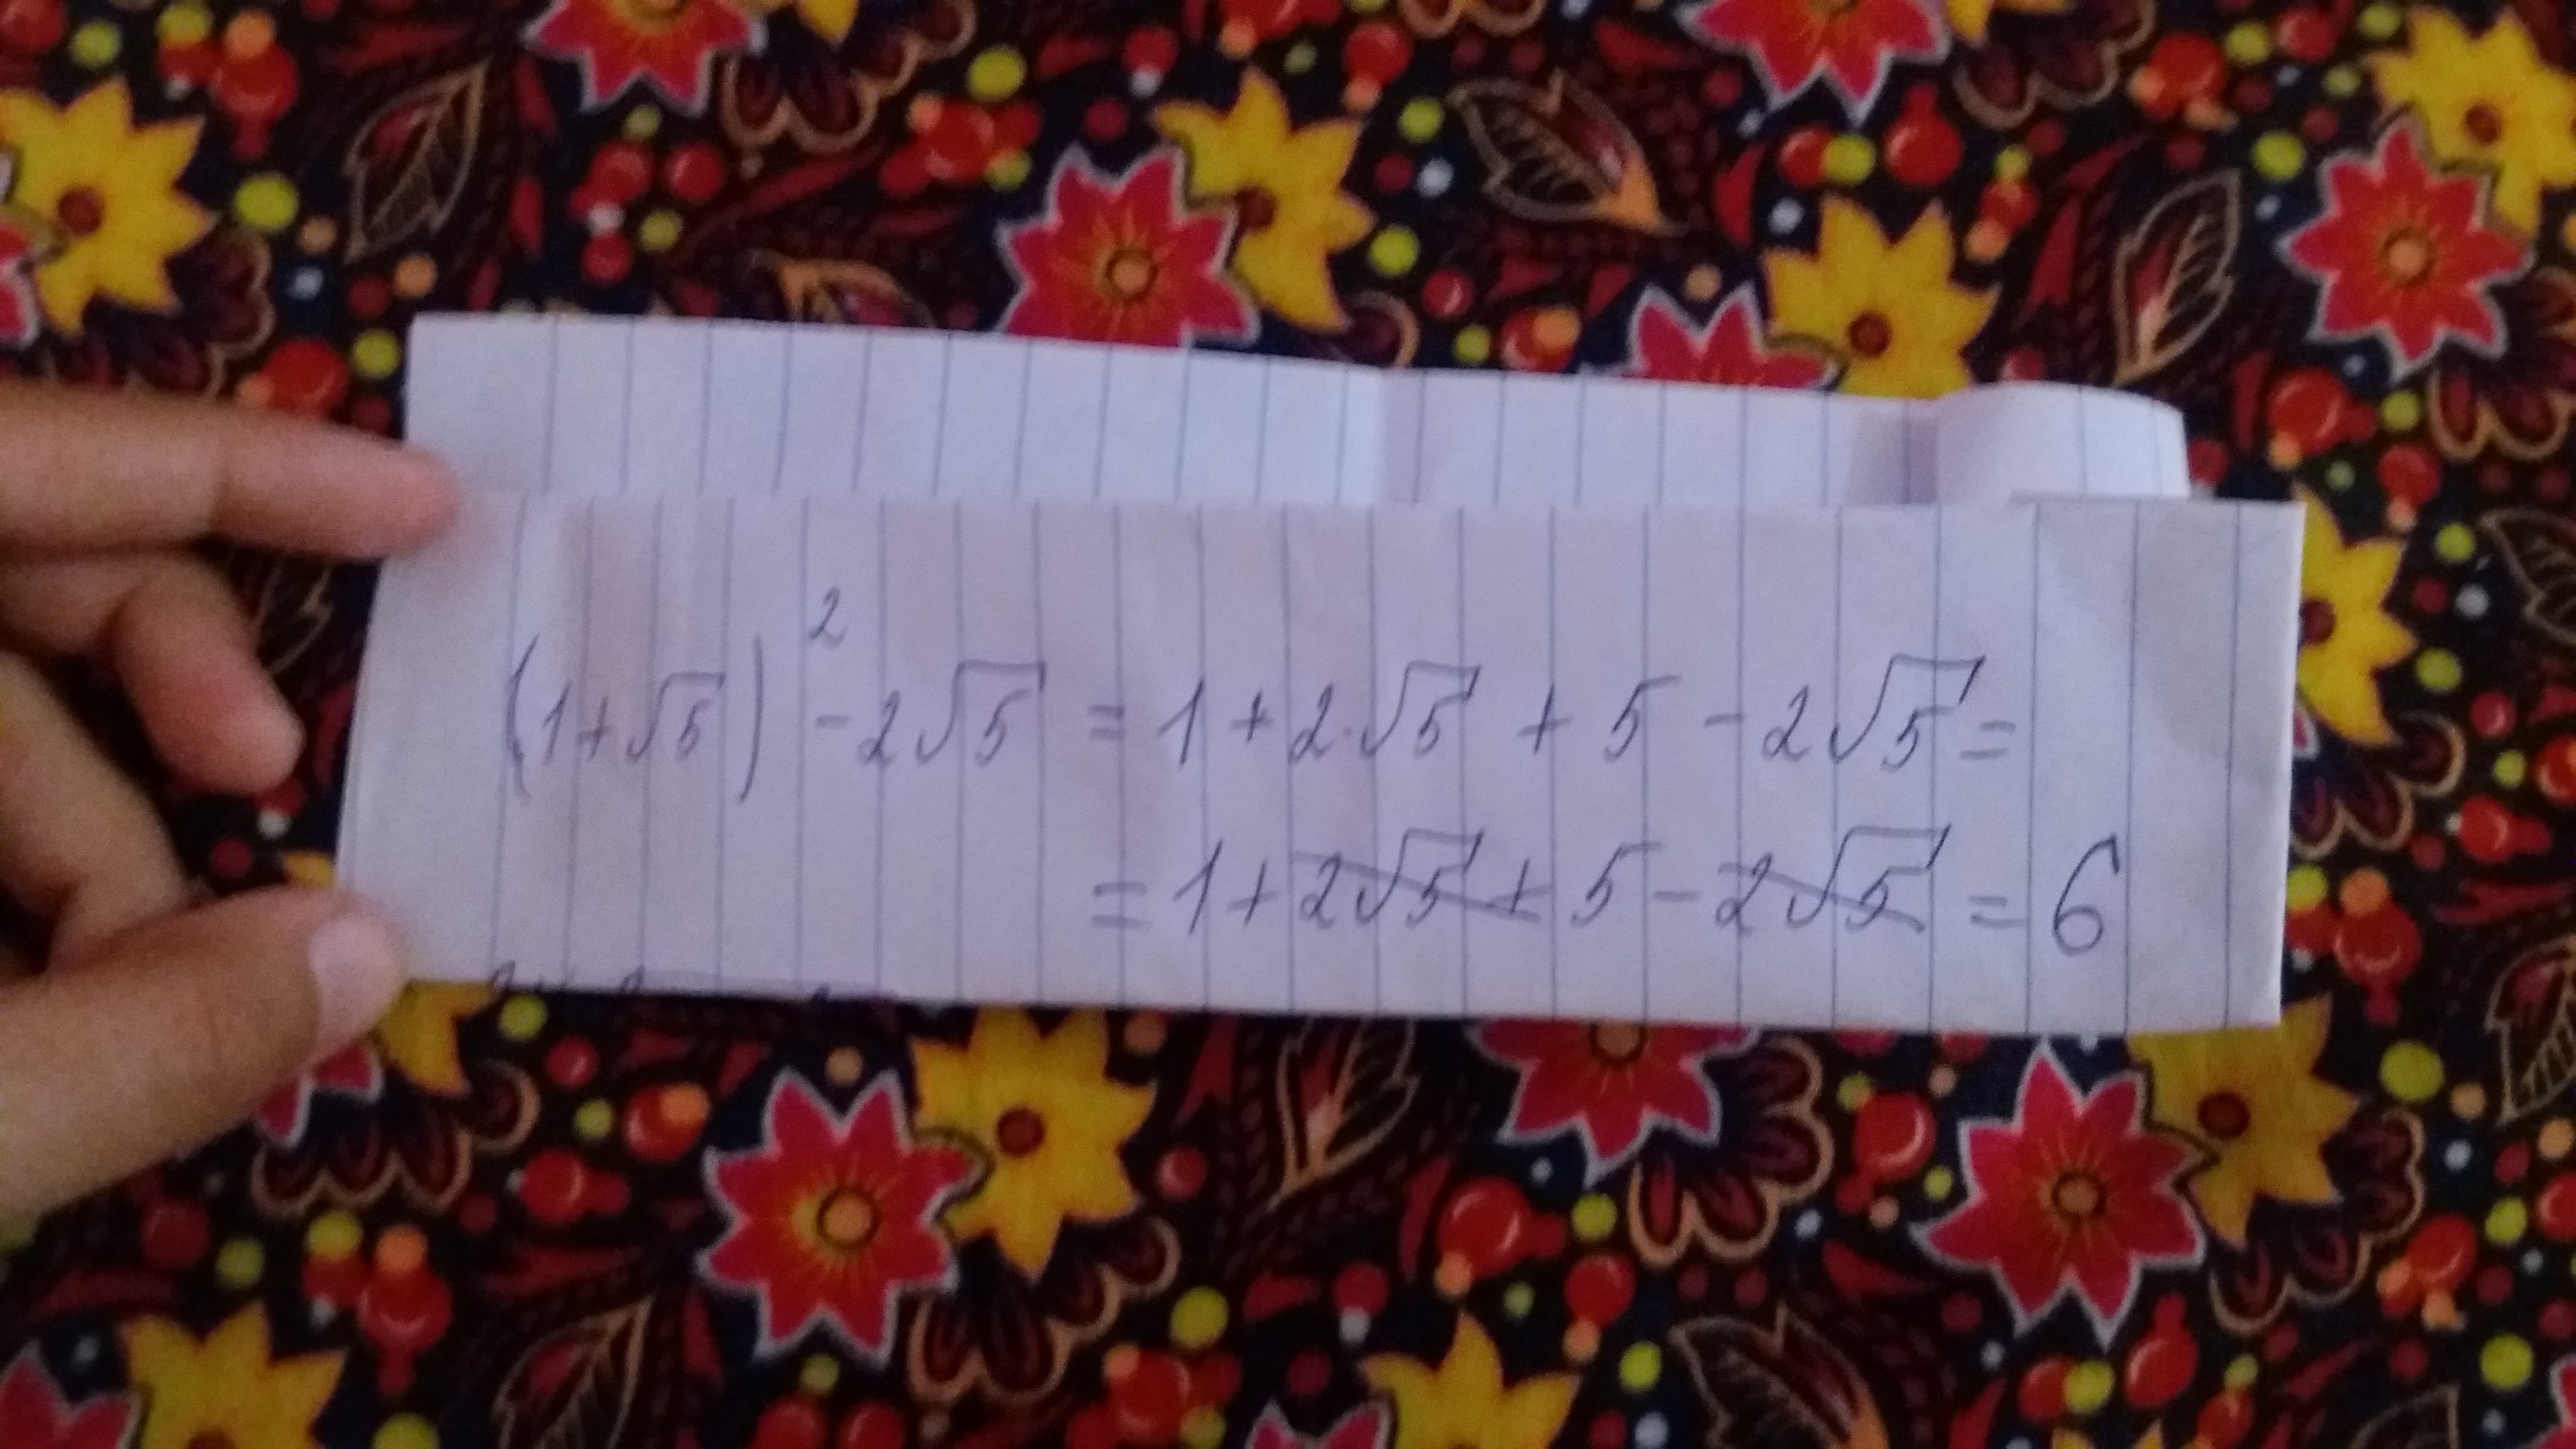 (1+√5)² - 2√5 = 1 + 2·√5 + 5 - 2√5 =
= 1 + 2√5 + 5 - 2√5 = 6